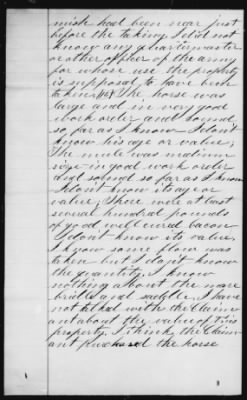 mish had been near just
before the taking, I did not
know any quartermaster
or other officer of the army
for whose use the property
is supposed to have been
taken, The horse was
large and in very good
work order and sound
so far as I know I don't
know his age or value;
The mule was medium
size in good work order
and sound so far as I know
I don't know its age or
value; There were at least
several hundred pounds
of good well cured bacon
I dont know its value,
I know some flour was
taken but I don't know
the quantity, I know
nothing about the mare
bridle and saddle, I have
not talked with the Claim
ant about the value of this
property, I think the Claim
ant purchased the horse